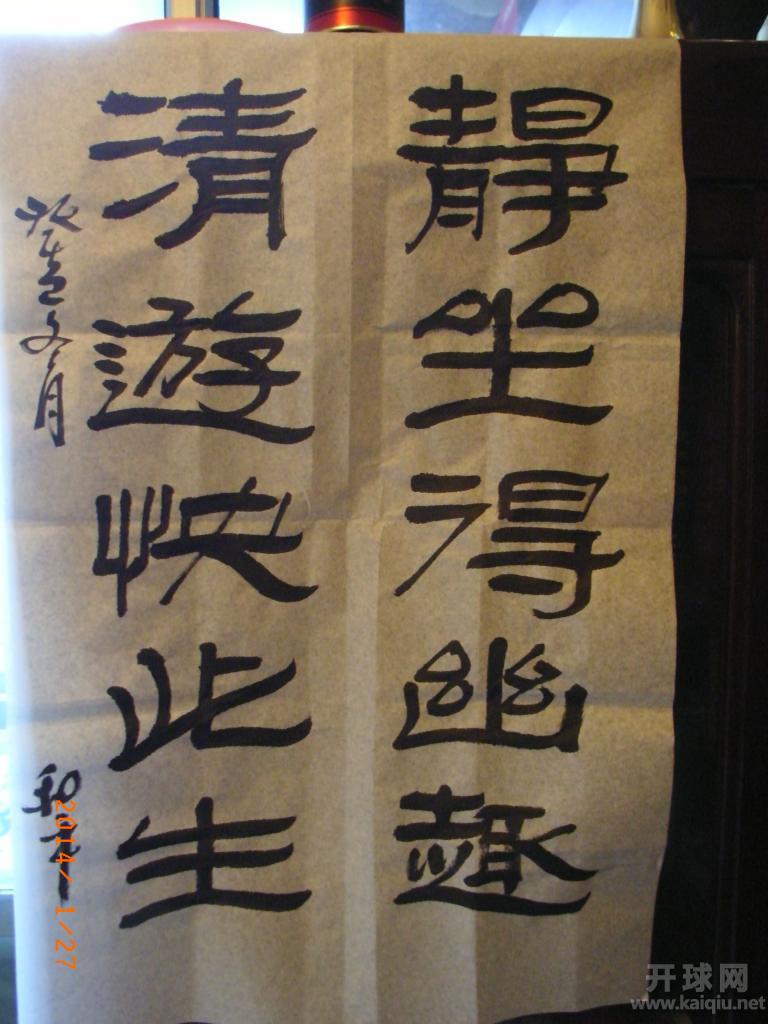 靜坐得幽趣
清遊快此生
2014/1/27
开球网
www.kaiqiu.net